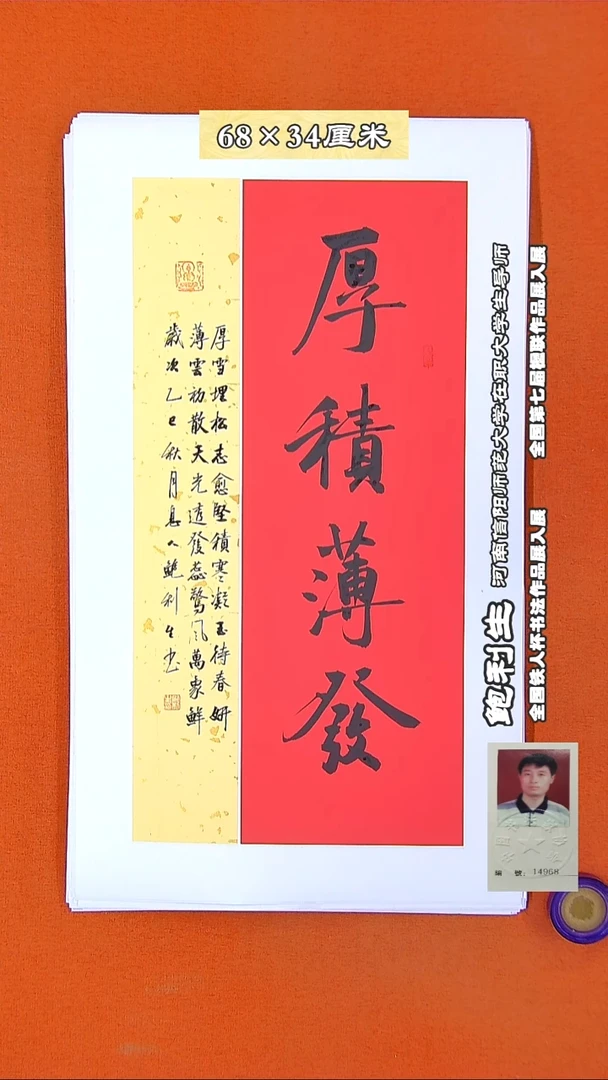 68×34厘米
厚積薄發
厚雪埋松志愈堅積寒凝玉待春妍
薄雲初散天光透發蕊驚風萬象鮮
歲次乙巳秋月息人鮑利生書
鲍利生
河南信阳师范大学在职大学生导师
全国铁人杯书法作品展入展
全国第七届楹联作品展入展
編 號：14968